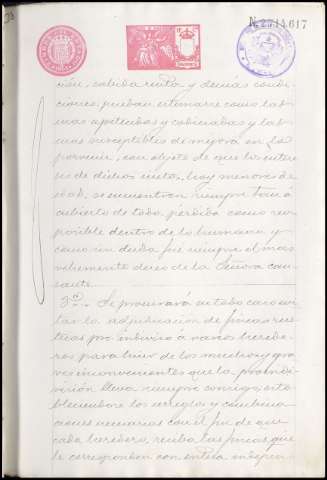 N. 2544.617
ción, cabida renta y demás condi-
ciones, puedan estimarse como las
mas apetecidas y codiciadas y las
mas susceptibles de mejora en lo
porvenir, con objeto de que los intere-
ses de dichos nietos, hoy menores de
edad, se encuentren siempre tan á
cubierto de toda perdida como sea
posible dentro de lo humano y
como sin duda fué siempre el mas
vehemente deseo de la Señora cau-
sante.
3ª. Se procurará en todo caso evi-
tar la adjudicación de fincas rus-
ticas pro-indiviso a varios herede-
ros para huir de los muchos y gra-
ves inconvenientes que la proindi-
visión lleva siempre consigo, esta-
bleciendose los arreglos y combina-
ciones necesarias con el fin de que
cada heredero, reciba las fincas que
le correspondan con entera indepen-